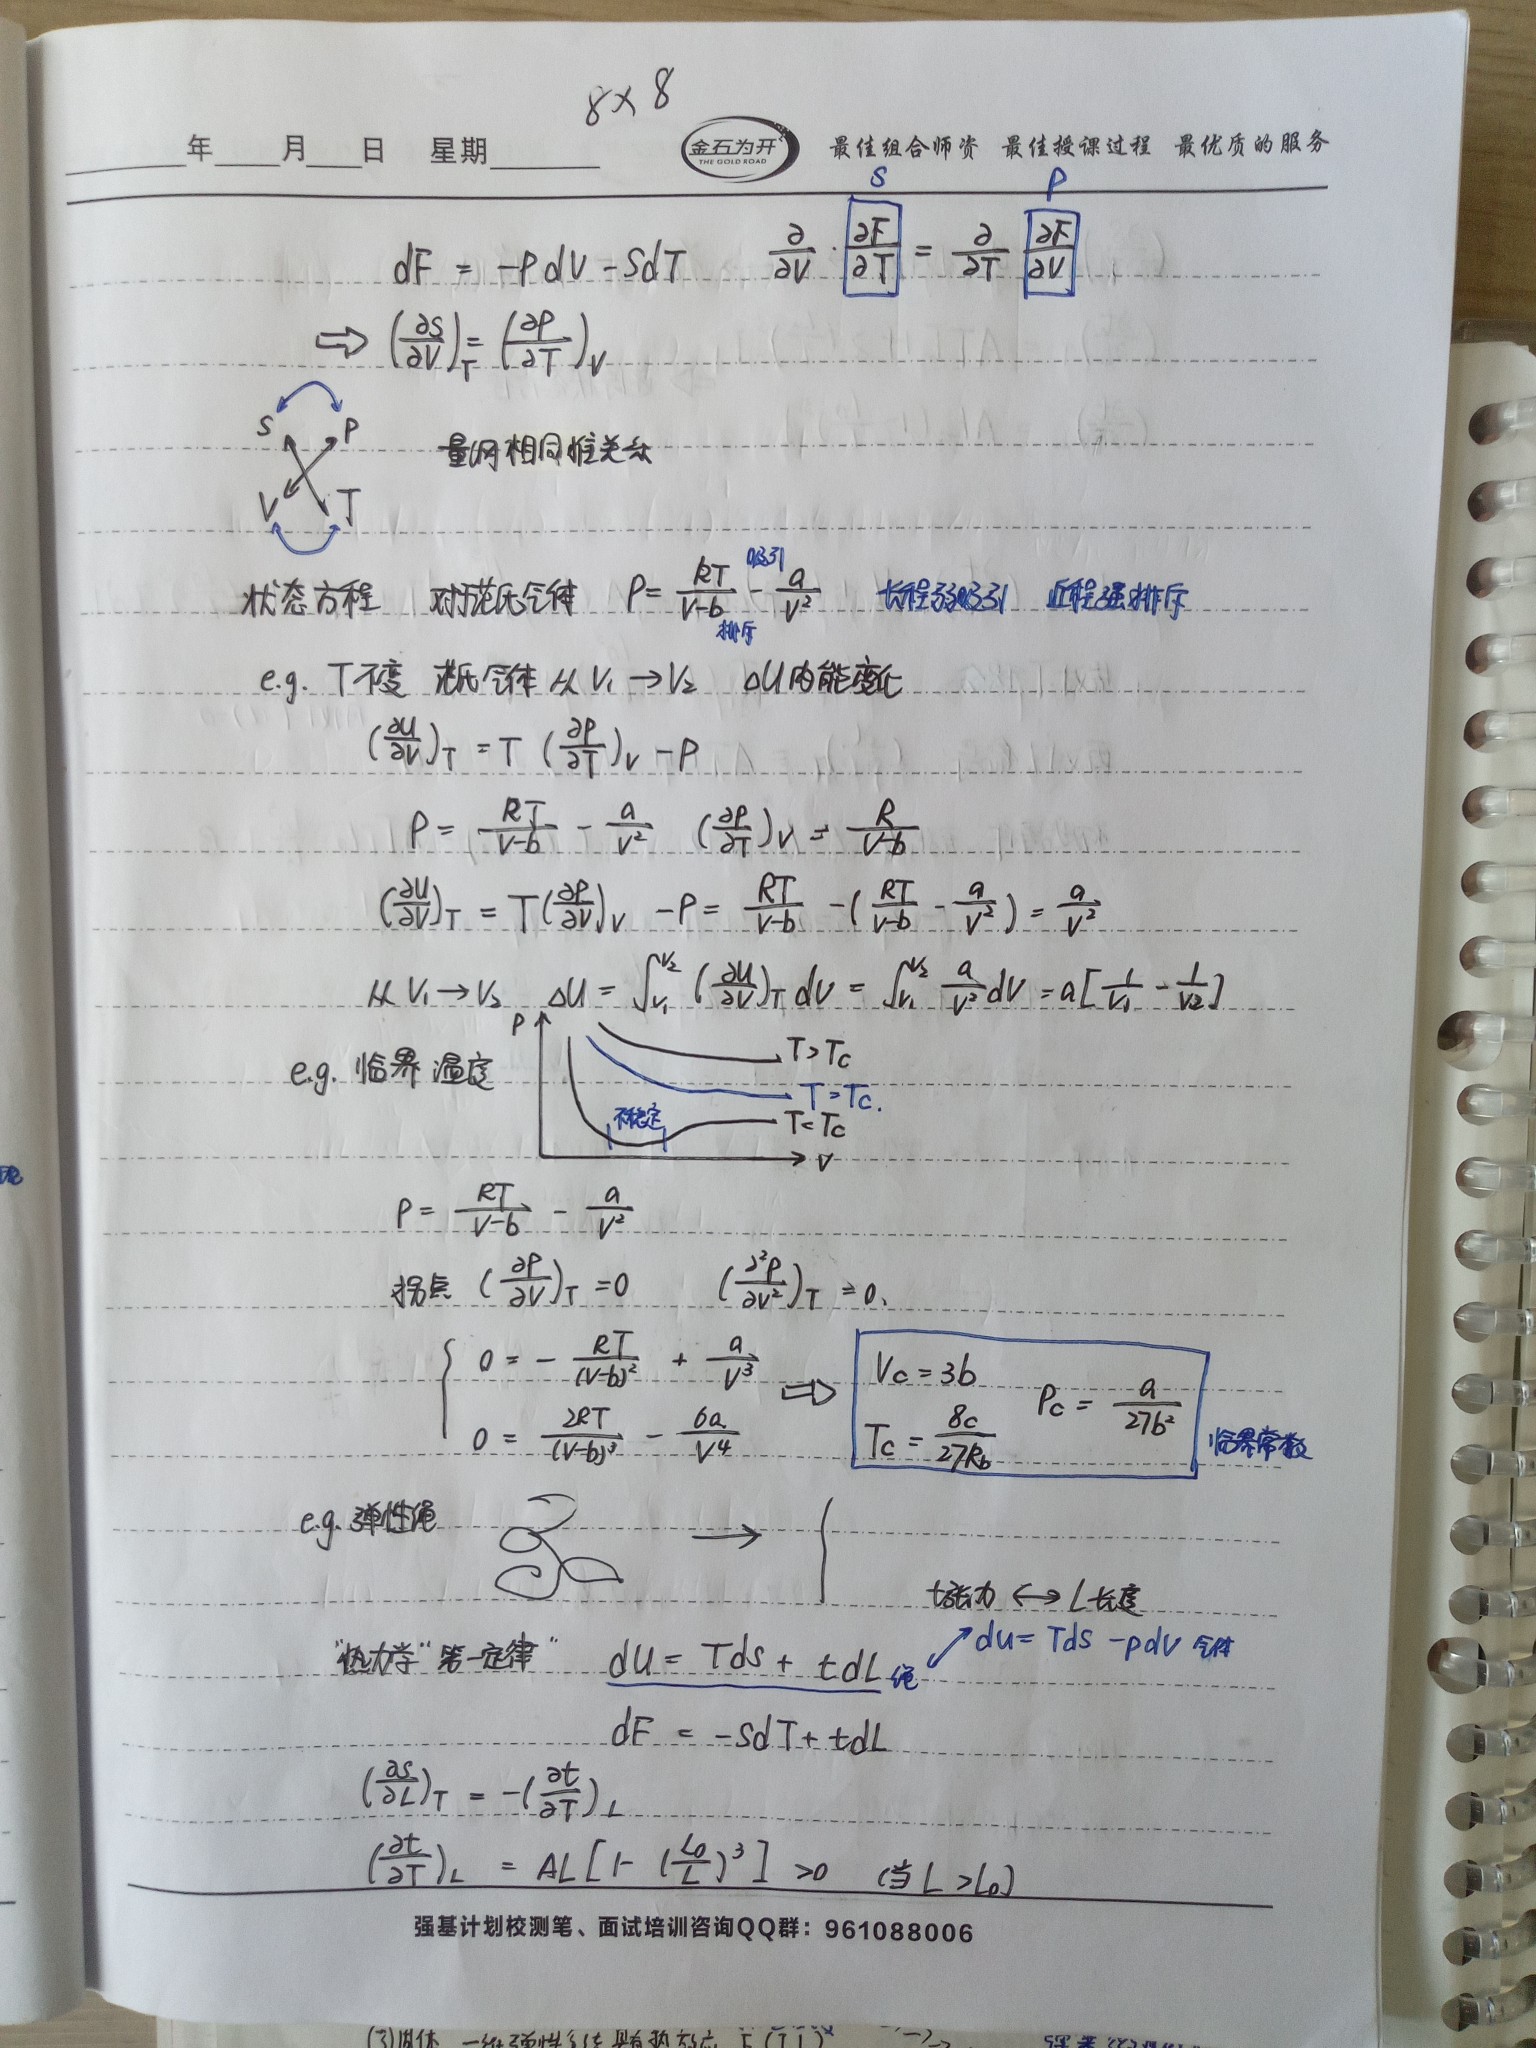 8×8
年 月 日 星期 金石为开 THE GOLD ROAD 最佳组合师资 最佳授课过程 最优质的服务
S P
dF = -PdV - SdT ∂/∂V · ∂F/∂T = ∂/∂T ∂F/∂V
⇒ (∂S/∂V)_T = (∂P/∂T)_V
S P
量纲相同
V T
状态方程 对于范氏气体 P = RT/(V-b) - a/V² 吸引 排斥 长程弱吸引 近程强排斥
e.g. T不变 范氏气体从 V₁→V₂ ΔU内能变化
(∂U/∂V)_T = T (∂P/∂T)_V - P
P = RT/(V-b) - a/V² (∂P/∂T)_V = R/(V-b)
(∂U/∂V)_T = T(∂P/∂V)_V - P = RT/(V-b) - (RT/(V-b) - a/V²) = a/V²
从 V₁→V₂ ΔU = ∫_{V₁}^{V₂} (∂U/∂V)_T dV = ∫_{V₁}^{V₂} a/V² dV = a[1/V₁ - 1/V₂]
e.g. 临界温度 P
T>Tc
T=Tc.
不稳定 T<Tc
V
P = RT/(V-b) - a/V²
拐点 (∂P/∂V)_T = 0 (∂²P/∂V²)_T = 0.
0 = - RT/(V-b)² + a/V³ ⇒ Vc = 3b Pc = a/27b²
0 = 2RT/(V-b)³ - 6a/V⁴ Tc = 8c/27Rb 临界常数
e.g. 弹性绳 →
t张力 ↔ L长度
"热力学"第一定律" dU = TdS + tdL 绳 dU = TdS - PdV 气体
dF = -SdT + tdL
(∂S/∂L)_T = -(∂t/∂T)_L
(∂t/∂T)_L = AL[1-(L₀/L)³] >0 (当L>L₀)
强基计划校测笔、面试培训咨询QQ群：961088006